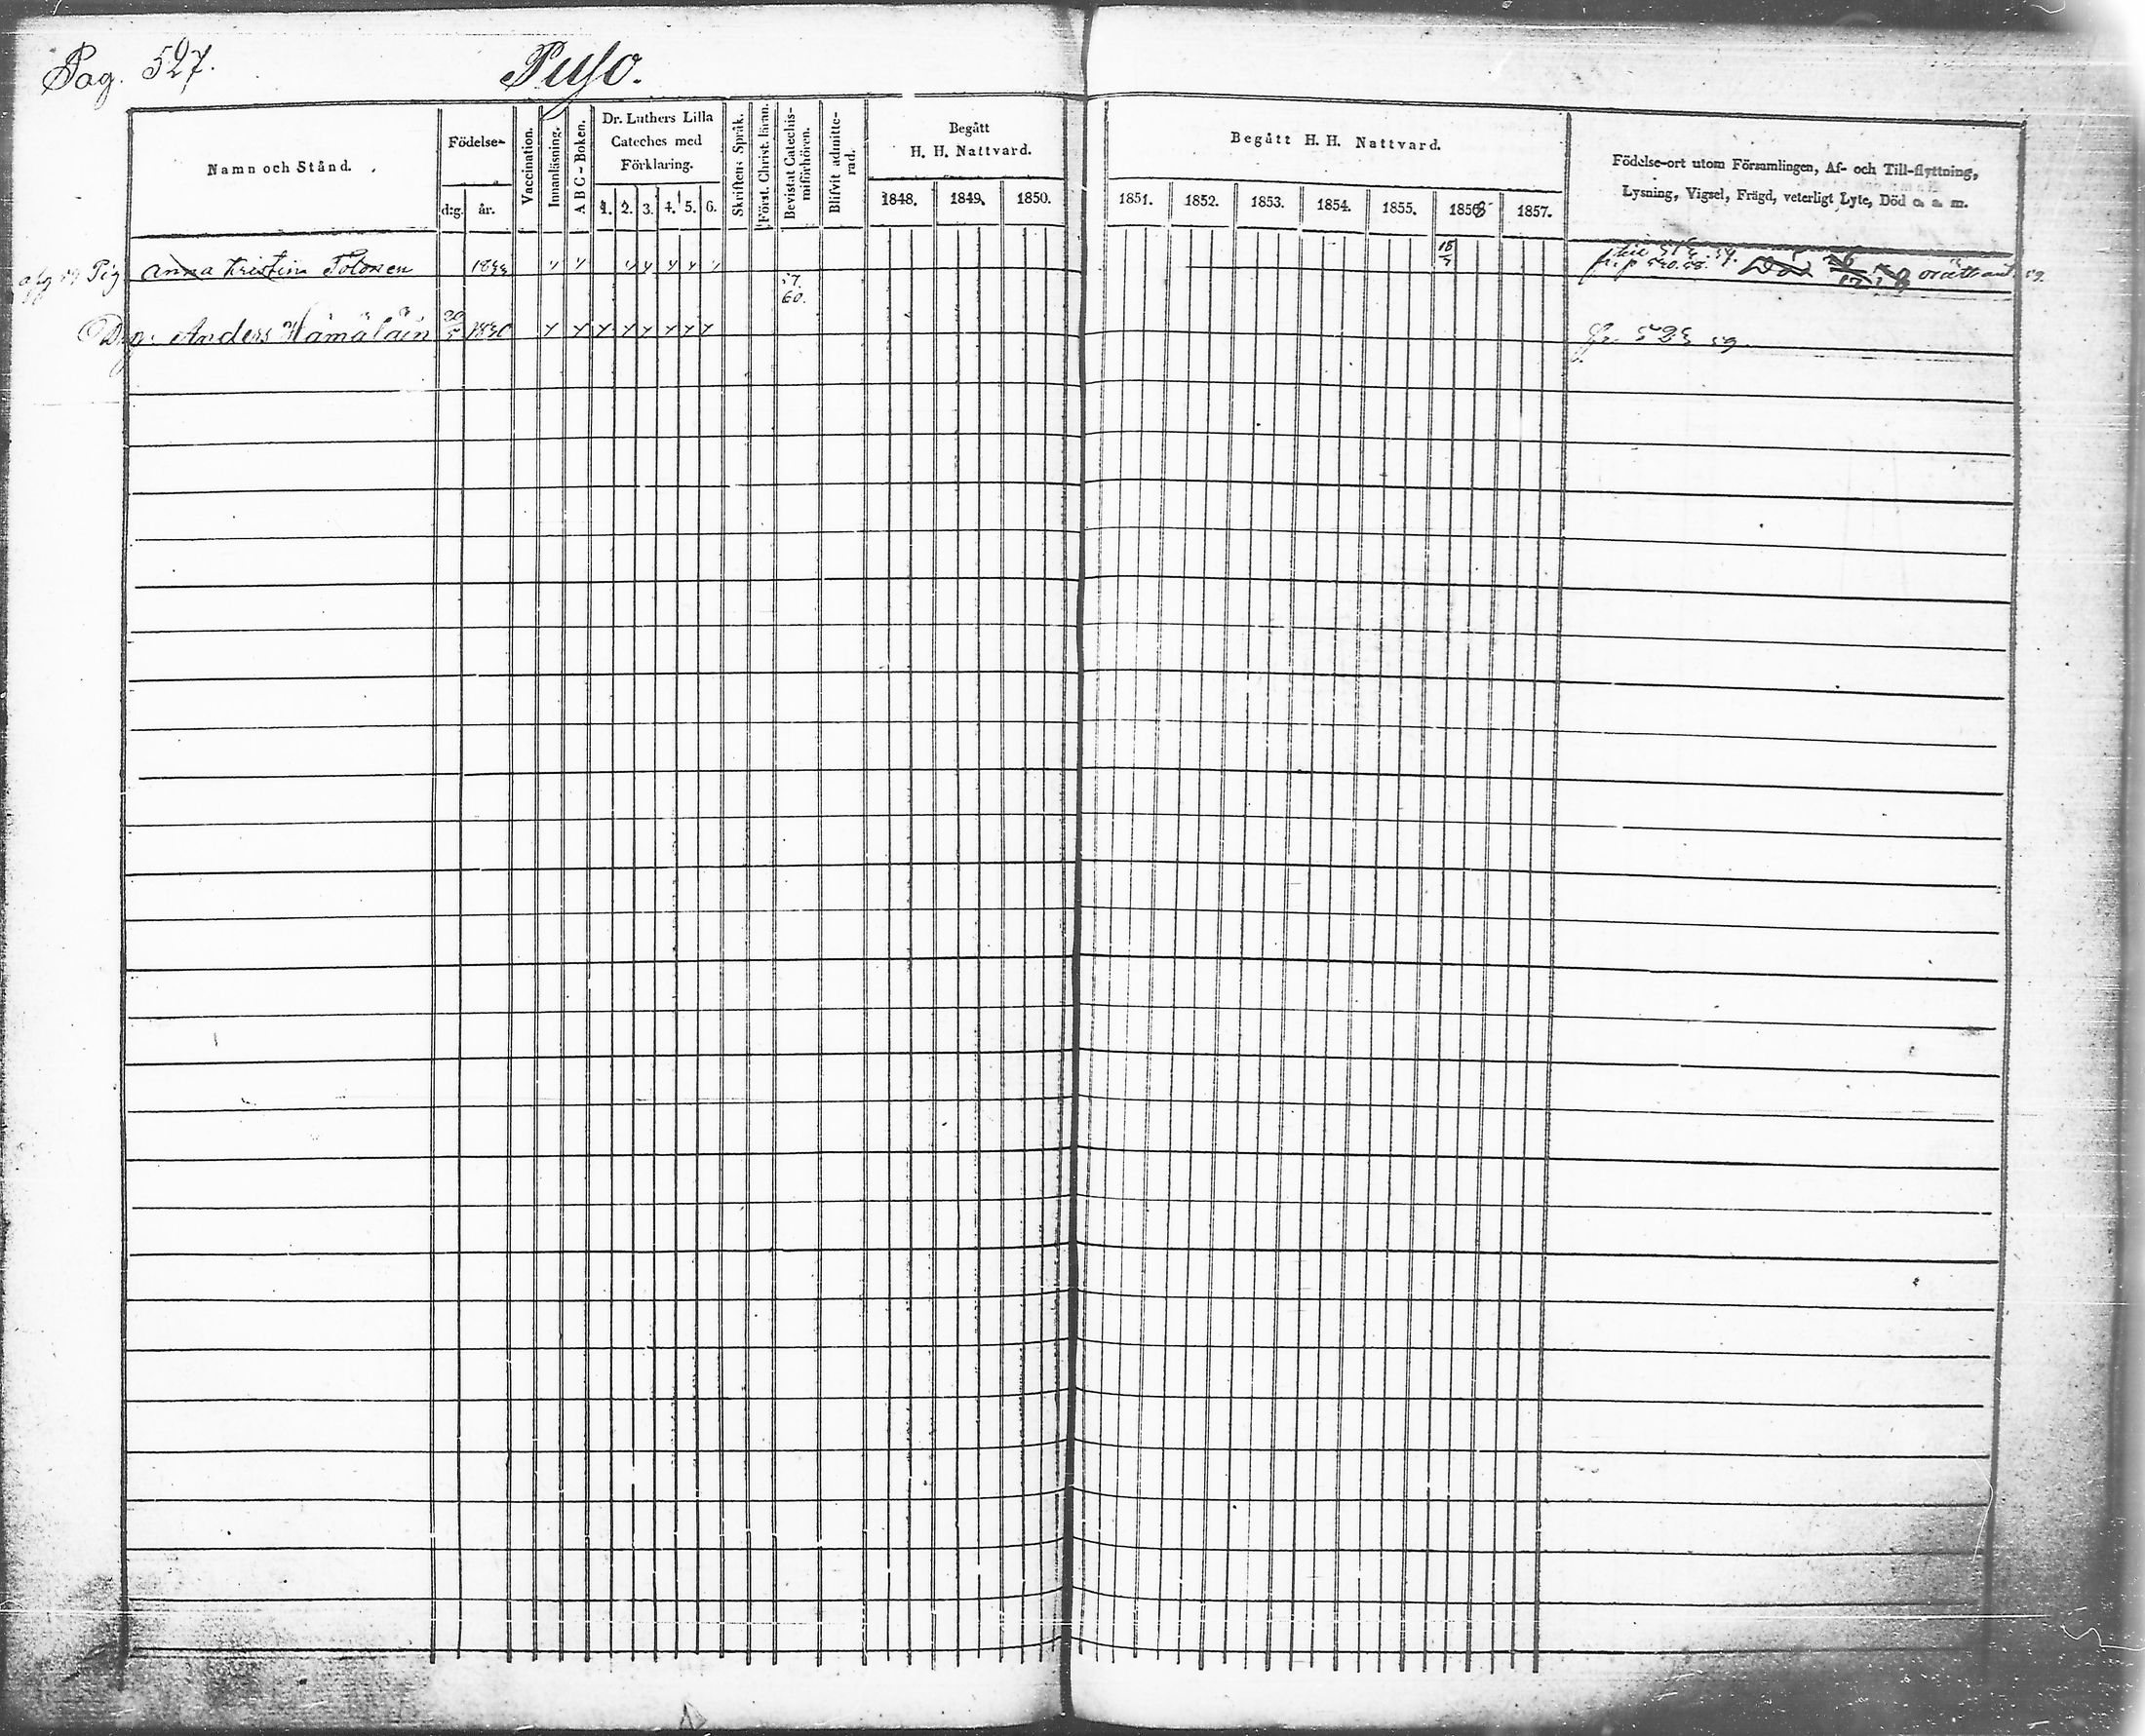 Pag. 527.
Puso.
Namn och Stånd.
Födelse-
d:g.
år.
Vaccination.
Innanläsning.
A B C - Boken.
Dr. Luthers Lilla
Cateches med
Förklaring.
1. 2. 3. 4. 5. 6.
Skriftens Språk.
Först. Christ. läran.
Bevistat Catechis-
miförhören.
Blifvit admitte-
rad.
Begått
H. H. Nattvard.
1848. 1849. 1850.
Begått H. H. Nattvard.
1851. 1852. 1853. 1854. 1855. 1858 1857.
Födelse-ort utom Församlingen, Af- och Till-flyttning,
Lysning, Vigsel, Frägd, veterligt Lyte, Död o. a. m.
Pig. Anna Kristina Tolonen
fr. p 540.58. Död orätt ant. 59.
57.
60.
Anders Hämäläin 1830
fr. 523 59.